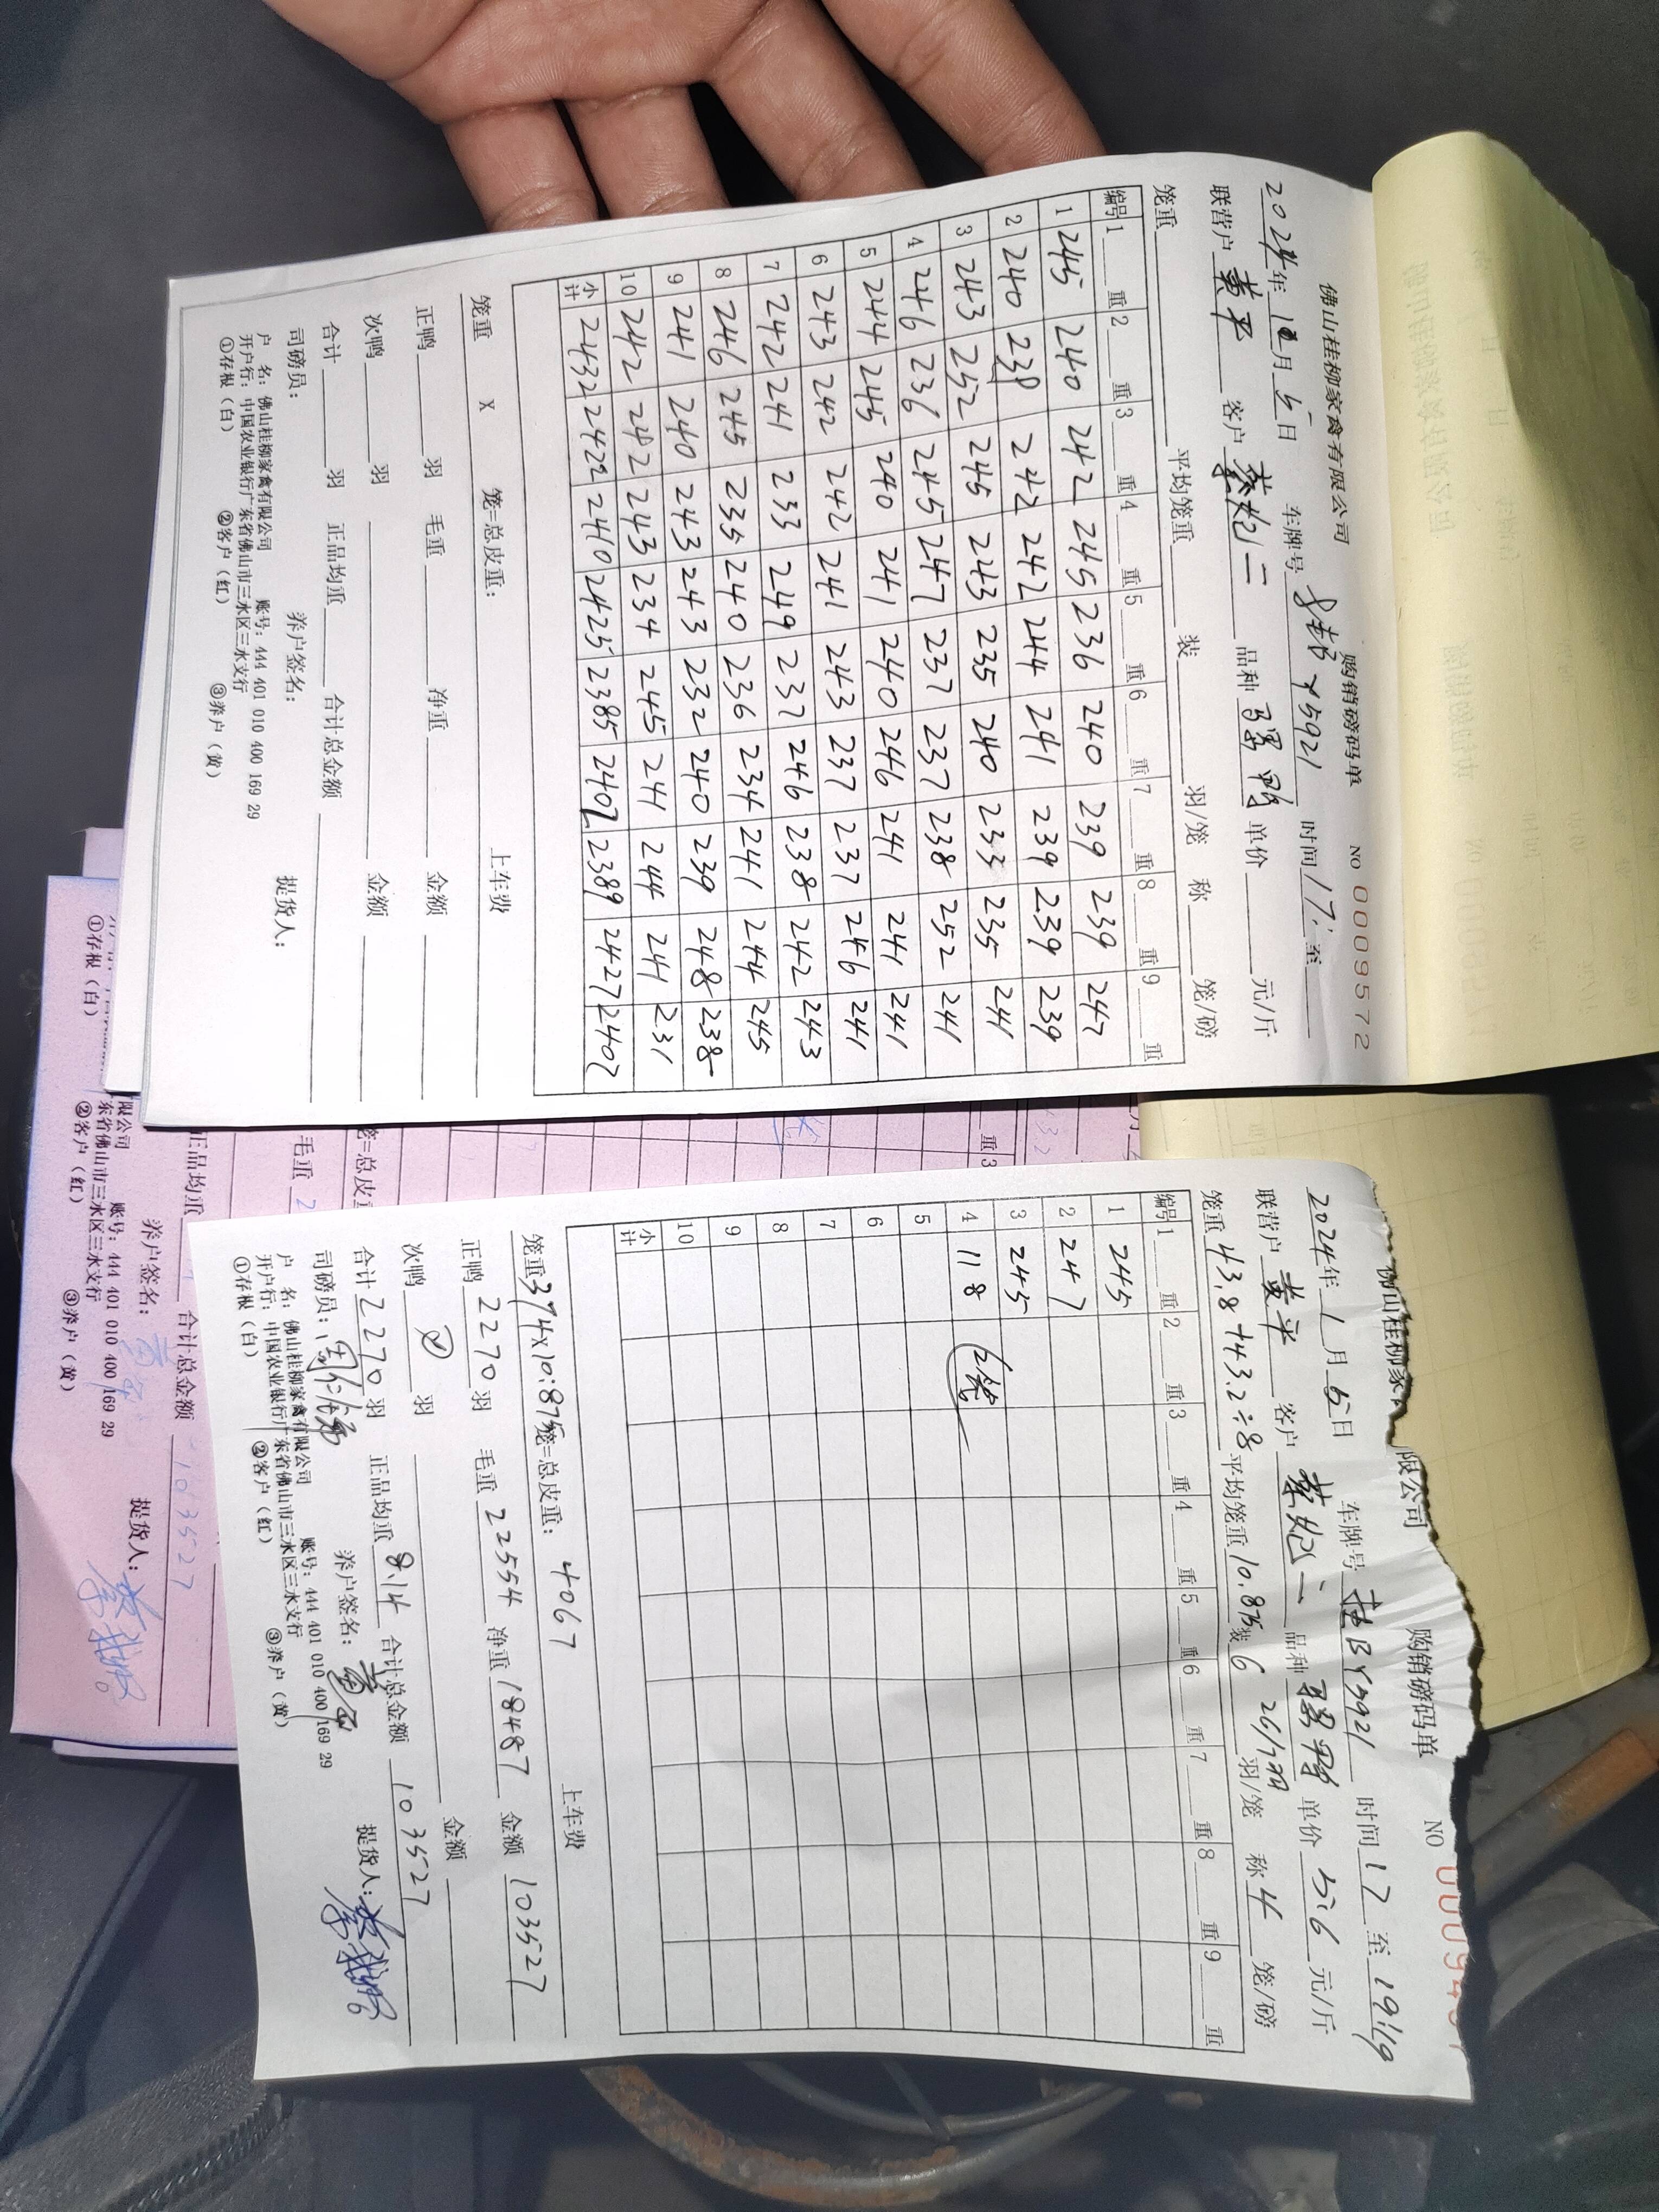 佛山桂柳家禽有限公司 购销磅码单 NO 0009572
2024年1月5日 车牌号 Y5921 时间17:至
联营户 黄平 客户 品种 骡鸭 单价 元/斤
笼重 平均笼重 装 羽/笼 称 笼/磅
编号 1 重 2 重 3 重 4 重 5 重 6 重 7 重 8 重 9 重
1 245 240 242 245 236 240 239 239 247
2 240 239 242 242 244 241 239 239 239
3 243 252 245 243 235 240 233 235 241
4 246 236 245 247 237 237 238 252 241
5 244 245 240 241 240 246 241 241 241
6 243 242 242 241 243 237 237 246 241
7 242 241 233 249 237 246 238 242 243
8 246 245 235 240 236 234 241 244 245
9 241 240 243 243 232 240 239 248 238
10 242 242 243 234 245 241 244 241 231
小计 2432 2422 2410 2425 2385 2402 2389 2427 2407
上车费
笼重 X 笼=总皮重:
正鸭 羽 毛重 净重 金额
次鸭 羽 金额
合计 羽 正品均重 合计总金额
司磅员: 养户签名: 提货人:
户 名: 佛山桂柳家禽有限公司 账号: 444 401 010 400 169 29
开户行: 中国农业银行广东省佛山市三水区三水支行
①存根(白) ②客户(红) ③养户(黄)
佛山桂柳家 限公司 购销磅码单 NO 0009
2024年1月5日 车牌号 桂BY5921 时间17至19:19
联营户 黄平 客户 品种 骡鸭 单价 5.6 元/斤
笼重 43.8+43.2÷8 平均笼重 10.875 装 6 26/7羽 羽/笼 称 4 笼/磅
编号 1 重 2 重 3 重 4 重 5 重 6 重 7 重 8 重 9 重
1 245
2 247
3 245
4 118 2笼
5
6
7
8
9
10
小计
上车费
笼重 374x10.875 笼=总皮重: 4067
正鸭 2270 羽 毛重 22554 净重 18487 金额 103527
次鸭 羽 金额
合计 2270 羽 正品均重 8.14 合计总金额 103527
司磅员: 养户签名: 黄平 提货人:
户 名: 佛山桂柳家禽有限公司 账号: 444 401 010 400 169 29
开户行: 中国农业银行广东省佛山市三水区三水支行
①存根(白) ②客户(红) ③养户(黄)
重3
笼=总皮重
毛重 2
正品均重 合计总金额 103527
养户签名: 黄平 提货人:
限公司 账号: 444 401 010 400 169 29
东省佛山市三水区三水支行
①存根(白) ②客户(红) ③养户(黄)